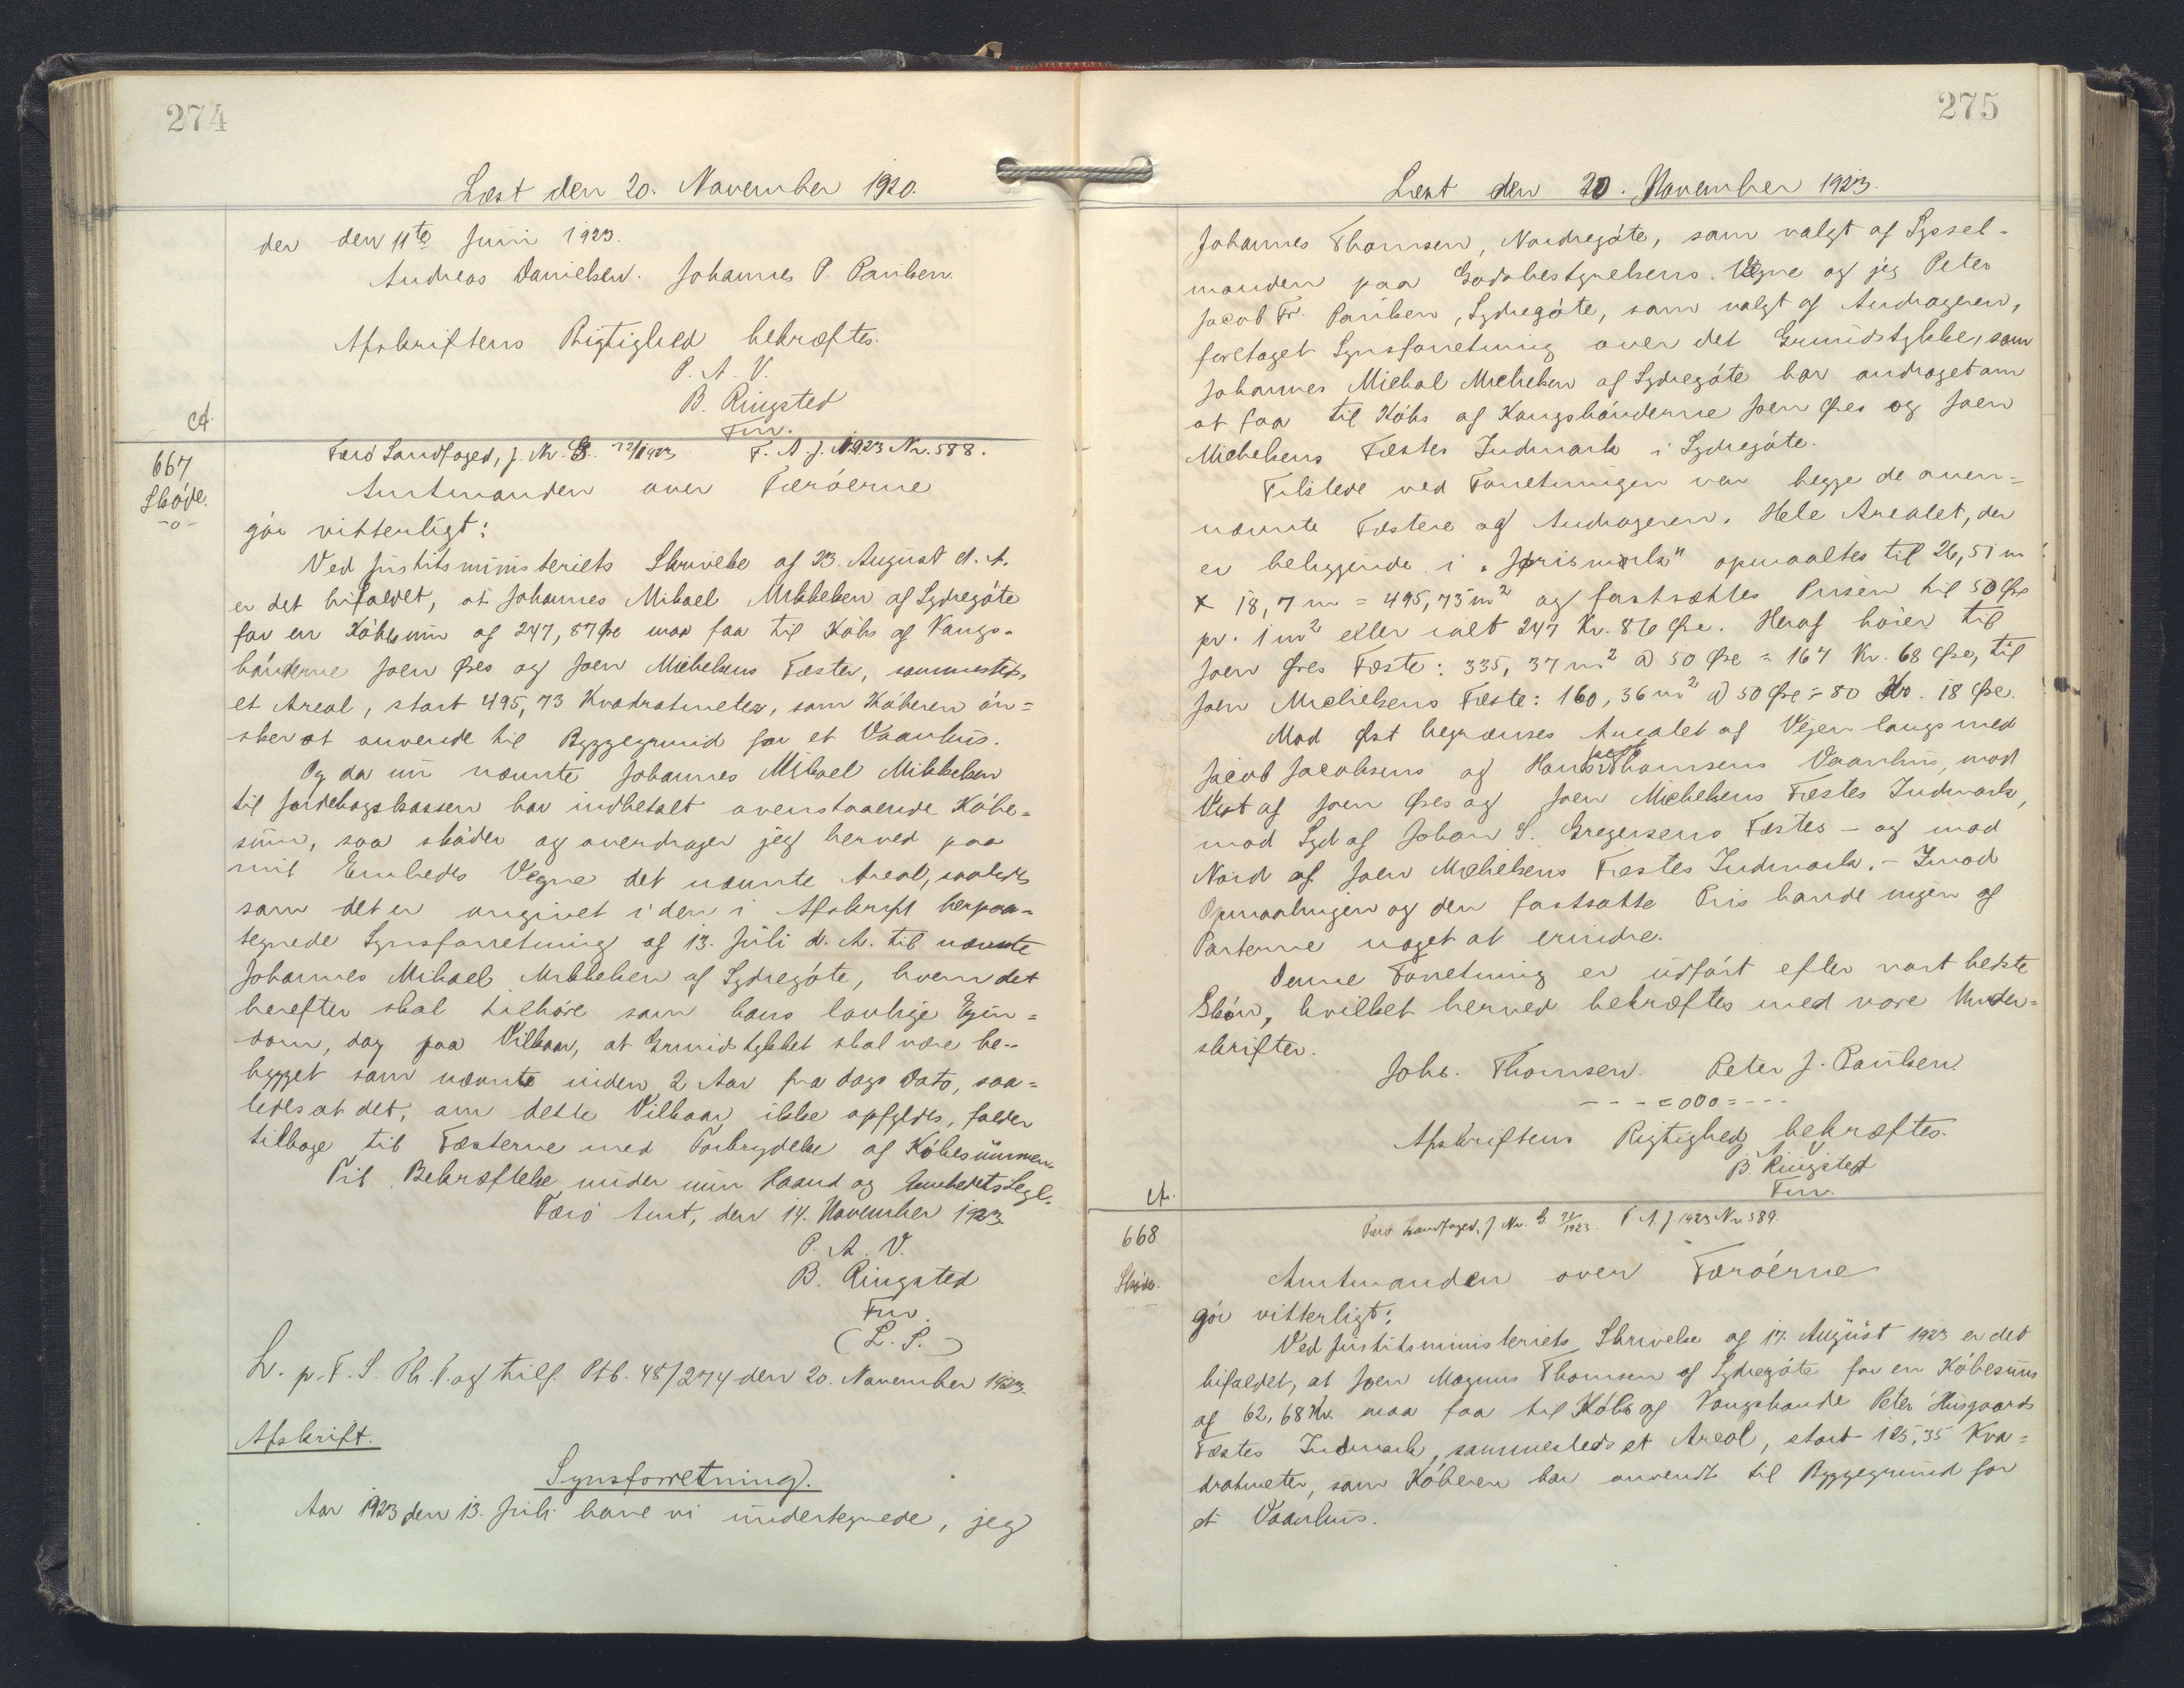 274
Læst den 20. November 1920.
der den 11te Juni 1923.
Andreas Danielsen. Johannes P. Paulsen.
Afskriftens Rigtighed bekræftes.
P. A. V.
B. Ringsted
Fm.
667
Skøde.
-o-
Færø Landfoged, J. Nr. B. 22/1923 F. A. J. 1923 Nr. 588.
Amtmanden over Færøerne
gör vitterligt:
Ved Justitsministeriets Skrivelse af 23. August d. A.
er det bifaldet, at Johannes Mikael Mikkelsen af Sydregøte
for en Købesum af 247,87 Øre maa faa til Købs af Kongs-
bønderne Joen Øres og Joen Michelsens Fæster, sammesteds,
et Areal, stort 495,73 Kvadratmeter, som Køberen øn=
sker at anvende til Byggegrund for et Vaanhus.
Og da nu nævnte Johannes Mikael Mikkelsen
til Jordebogskassen har indbetalt ovenstaaende Købe=
sum, saa skøder og overdrager jeg herved paa
mit Embeds Vegne det nævnte Areal, saaledes
som det er angivet i den i Afskrift herpaa=
tegnede Synsforretning af 13. Juli d. A. til nævnte
Johannes Mikael Mikkelsen af Sydregøte, hvem det
herefter skal tilhøre som hans lovlige Ejen=
dom, dog paa Vilkaar, at Grundstykket skal være be-
bygget som nævnte inden 2 Aar fra dags Dato, saa=
ledes at det, om dette Vilkaar ikke opfyldes, falder
tilbage til Fæsterne med Forbrydelse af Købesummen.
Til Bekræftelse under min Haand og Embedets Segl.
Færø Amt, den 14. November 1923.
P. A. V.
B. Ringsted
Fm.
(L. S.)
L. p. F. S. Th. P. og tilf. Ptb. 48/274 den 20. November 1923.
Afskrift.
Synsforretning.
Aar 1923 den 13. Juli have vi undertegnede, jeg
275
Læst den 20. November 1923.
Johannes Thomsen, Nordregøte, som valgt af Syssel-
manden paa Godsbestyrelsens Vegne og jeg Peter
Jacob Fr. Paulsen, Sydregøte, som valgt af Andrageren,
foretaget Synsforretning over det Grundstykke, som
Johannes Michal Michelsen af Sydregøte har andraget om
at faa til Købs af Kongsbønderne Joen Øres og Joen
Michelsens Fæstes Indmark i Sydregøte.
Tilstede ved Forretningen var begge de oven=
nævnte Fæstere og Andrageren. Hele Arealet, der
er beliggende i "Jørismørk" opmaaltes til 26,51 m
x 18,7 m = 495,73 m² og fastsættes Prisen til 50 Øre
pr. 1 m² eller ialt 247 Kr. 86 Øre. Heraf höier til
Joen Øres Fæste: 335,37 m² @ 50 Øre = 167 Kr. 68 Øre, til
Joen Michelsens Fæste: 160,36 m² @ 50 Øre = 80 Kr. 18 Øre.
Mod Øst begrænses Arealet af Vejen langs med
Jacob Jacobsens og Hans Jacob Thomsens Vaanhus, mod
Vest af Joen Øres og Joen Michelsens Fæstes Indmark,
mod Syd af Johan S. Gregersens Fæstes - og mod
Nord af Joen Michelsens Fæstes Indmark. - Imod
Opmaalingen og den fastsatte Pris havde ingen af
Parterne noget at erindre.
Denne Forretning er udført efter vort bedste
Skøn, hvilket herved bekræftes med vore Under=
skrifter.
Johs. Thomsen. Peter J. Paulsen.
- - - = o0o = - - -
Afskriftens Rigtighed bekræftes.
P. A. V.
B. Ringsted
Fm.
668
Skøde.
Færø Landfoged, J. Nr. B 22/1923. F. A. J. 1923 Nr. 589.
Amtmanden over Færøerne
gör vitterligt:
Ved Justitsministeriets Skrivelse af 17. August 1923 er det
bifaldet, at Joen Magnus Thomsen af Sydregøte for en Købesum
af 62,68 Kr. maa faa til Købs af Kongsbonde Peter Husgaards
Fæstes Indmark, sammesteds et Areal, stort 125,35 Kva=
dratmeter, som Køberen har anvendt til Byggegrund for
et Vaanhus.